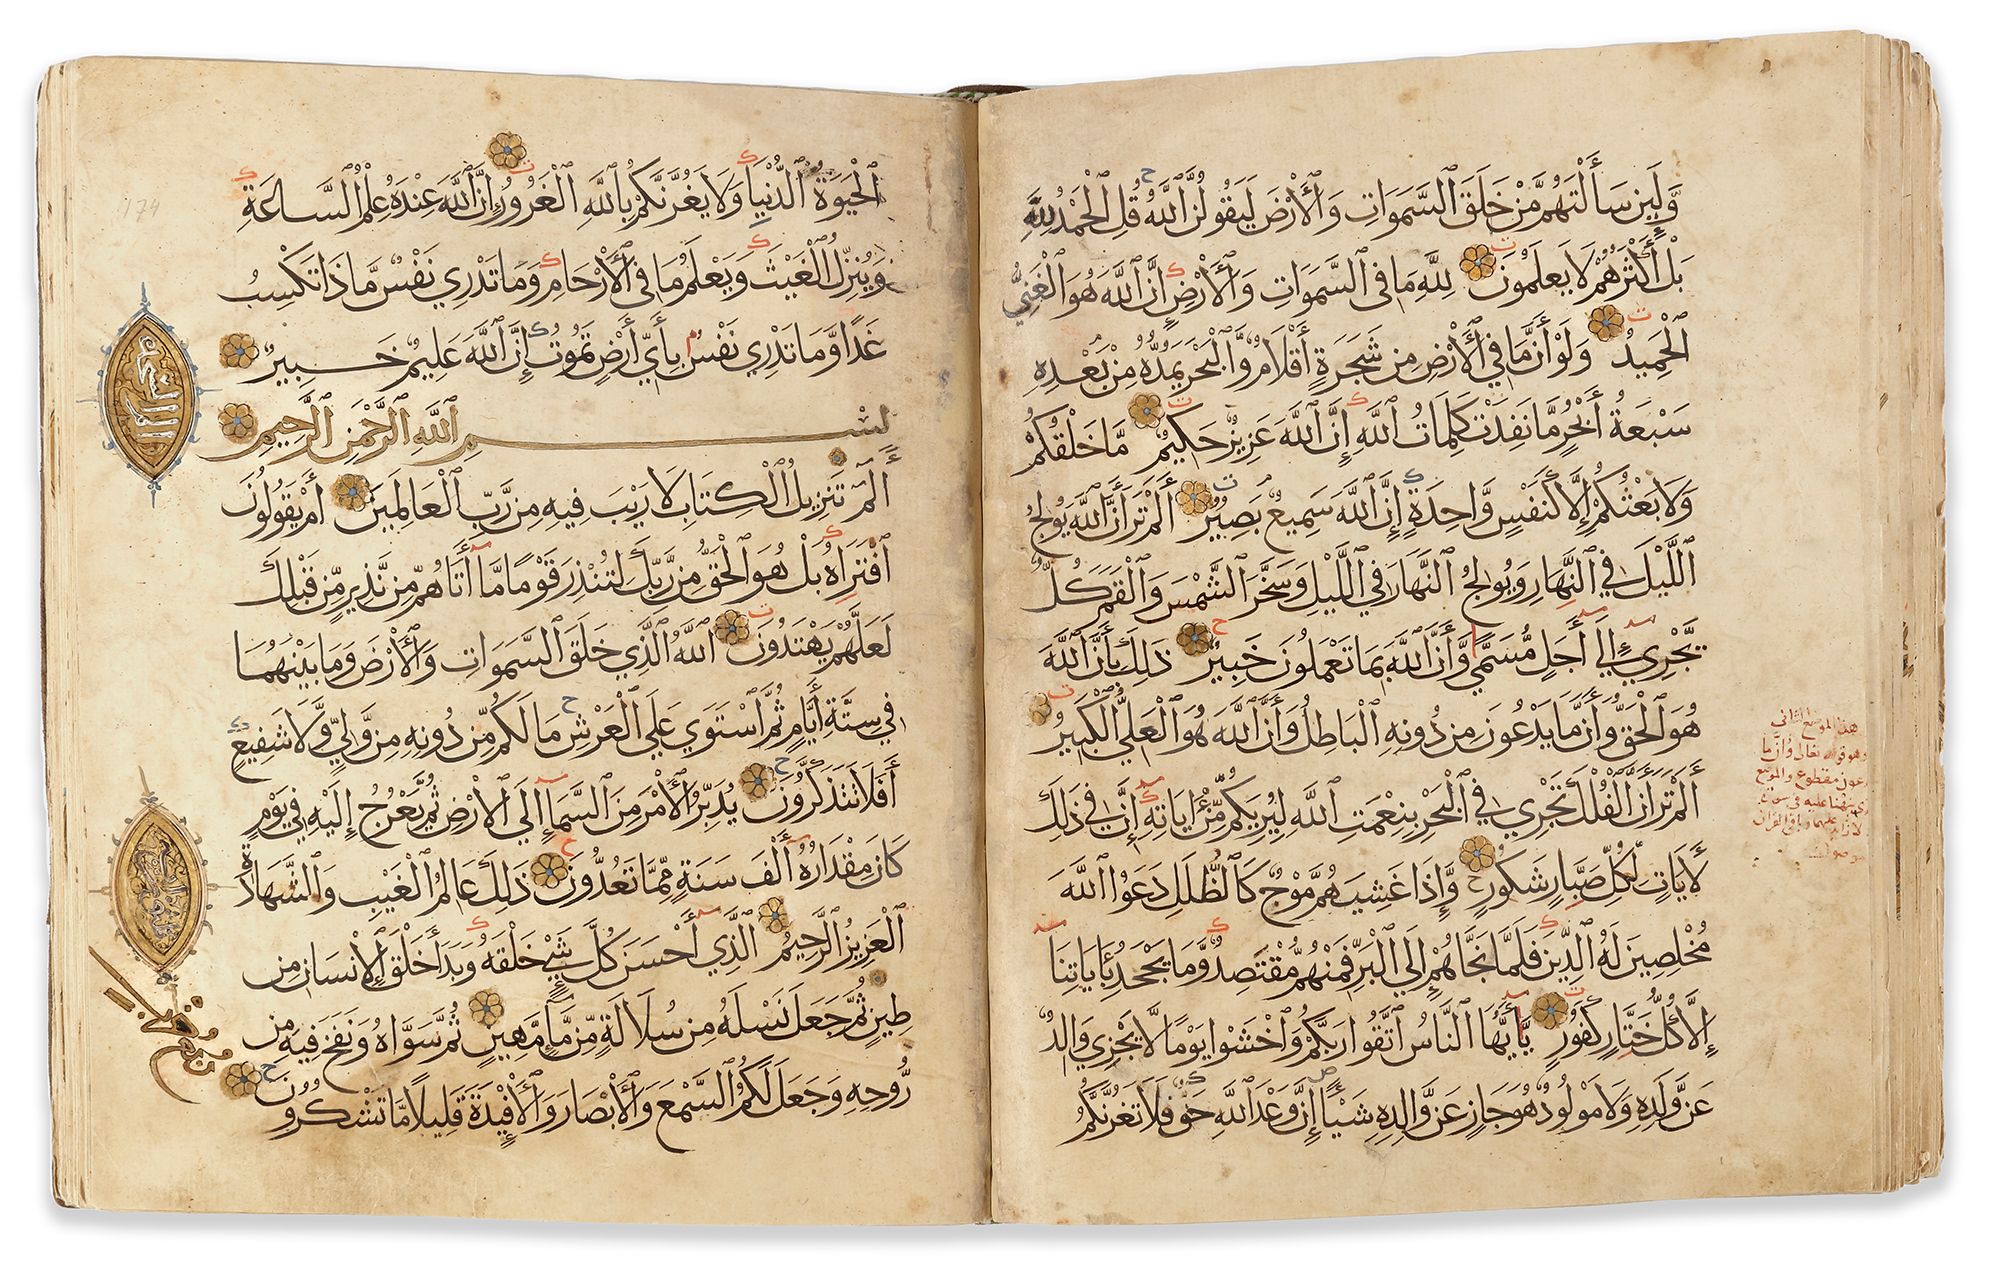 وَلَئِن سَأَلْتَهُم مَّنْ خَلَقَ السَّمَوَاتِ وَالْأَرْضَ لَيَقُولُنَّ اللَّهُ قُلِ الْحَمْدُ لِلَّهِ
بَلْ أَكْثَرُهُمْ لَا يَعْلَمُونَ لِلَّهِ مَا فِي السَّمَوَاتِ وَالْأَرْضِ إِنَّ اللَّهَ هُوَ الْغَنِيُّ
الْحَمِيدُ وَلَوْ أَنَّ مَا فِي الْأَرْضِ مِن شَجَرَةٍ أَقْلَامٌ وَّالْبَحْرُ يَمُدُّهُ مِنْ بَعْدِهِ
سَبْعَةُ أَبْحُرٍ مَّا نَفِدَتْ كَلِمَاتُ اللَّهِ إِنَّ اللَّهَ عَزِيزٌ حَكِيمٌ مَّا خَلْقُكُمْ
وَلَا بَعْثُكُمْ إِلَّا كَنَفْسٍ وَّاحِدَةٍ إِنَّ اللَّهَ سَمِيعٌ بَصِيرٌ أَلَمْ تَرَ أَنَّ اللَّهَ يُولِجُ
اللَّيْلَ فِي النَّهَارِ وَيُولِجُ النَّهَارَ فِي اللَّيْلِ وَسَخَّرَ الشَّمْسَ وَالْقَمَرَ كُلٌّ
يَّجْرِي إِلَى أَجَلٍ مُّسَمًّى وَّأَنَّ اللَّهَ بِمَا تَعْمَلُونَ خَبِيرٌ ذَلِكَ بِأَنَّ اللَّهَ
هُوَ الْحَقُّ وَأَنَّ مَا يَدْعُونَ مِن دُونِهِ الْبَاطِلُ وَأَنَّ اللَّهَ هُوَ الْعَلِيُّ الْكَبِيرُ
أَلَمْ تَرَ أَنَّ الْفُلْكَ تَجْرِي فِي الْبَحْرِ بِنِعْمَتِ اللَّهِ لِيُرِيَكُم مِّنْ ءَايَاتِهِ إِنَّ فِي ذَلِكَ
لَآيَاتٍ لِّكُلِّ صَبَّارٍ شَكُورٍ وَّإِذَا غَشِيَهُم مَّوْجٌ كَالظُّلَلِ دَعَوُا اللَّهَ
مُخْلِصِينَ لَهُ الدِّينَ فَلَمَّا نَجَّاهُمْ إِلَى الْبَرِّ فَمِنْهُم مُّقْتَصِدٌ وَّمَا يَجْحَدُ بِـَٔايَاتِنَا
إِلَّا كُلُّ خَتَّارٍ كَفُورٍ يَّا أَيُّهَا النَّاسُ اتَّقُوا رَبَّكُمْ وَاخْشَوْا يَوْمًا لَّا يَجْزِي وَالِدٌ
عَن وَّلَدِهِ وَلَا مَوْلُودٌ هُوَ جَازٍ عَن وَّالِدِهِ شَيْـًٔا إِنَّ وَعْدَ اللَّهِ حَقٌّ فَلَا تَغُرَّنَّكُمُ
هذا الموضع الثاني
وهو قوله تعالى وأن ما
مقطوع والموضع
الْحَيَوةُ الدُّنْيَا وَلَا يَغُرَّنَّكُم بِاللَّهِ الْغَرُورُ إِنَّ اللَّهَ عِنْدَهُ عِلْمُ السَّاعَةِ
وَيُنَزِّلُ الْغَيْثَ وَيَعْلَمُ مَا فِي الْأَرْحَامِ وَمَا تَدْرِي نَفْسٌ مَّاذَا تَكْسِبُ
غَدًا وَّمَا تَدْرِي نَفْسٌ بِأَيِّ أَرْضٍ تَمُوتُ إِنَّ اللَّهَ عَلِيمٌ خَبِيرٌ
بِسْمِ اللَّهِ الرَّحْمَنِ الرَّحِيمِ
أَلم تَنزِيلُ الْكِتَابِ لَا رَيْبَ فِيهِ مِن رَّبِّ الْعَالَمِينَ أَمْ يَقُولُونَ
افْتَرَاهُ بَلْ هُوَ الْحَقُّ مِن رَّبِّكَ لِتُنْذِرَ قَوْمًا مَّا أَتَاهُم مِّن نَّذِيرٍ مِّن قَبْلِكَ
لَعَلَّهُمْ يَهْتَدُونَ اللَّهُ الَّذِي خَلَقَ السَّمَوَاتِ وَالْأَرْضَ وَمَا بَيْنَهُمَا
فِي سِتَّةِ أَيَّامٍ ثُمَّ اسْتَوَى عَلَى الْعَرْشِ مَا لَكُم مِّن دُونِهِ مِن وَّلِيٍّ وَّلَا شَفِيعٍ
أَفَلَا تَتَذَكَّرُونَ يُدَبِّرُ الْأَمْرَ مِنَ السَّمَاءِ إِلَى الْأَرْضِ ثُمَّ يَعْرُجُ إِلَيْهِ فِي يَوْمٍ
كَانَ مِقْدَارُهُ أَلْفَ سَنَةٍ مِّمَّا تَعُدُّونَ ذَلِكَ عَالِمُ الْغَيْبِ وَالشَّهَادَةِ
الْعَزِيزُ الرَّحِيمُ الَّذِي أَحْسَنَ كُلَّ شَيْءٍ خَلَقَهُ وَبَدَأَ خَلْقَ الْإِنْسَانِ مِن
طِينٍ ثُمَّ جَعَلَ نَسْلَهُ مِن سُلَالَةٍ مِّن مَّاءٍ مَّهِينٍ ثُمَّ سَوَّاهُ وَنَفَخَ فِيهِ مِن
رُّوحِهِ وَجَعَلَ لَكُمُ السَّمْعَ وَالْأَبْصَارَ وَالْأَفْئِدَةَ قَلِيلًا مَّا تَشْكُرُونَ
174